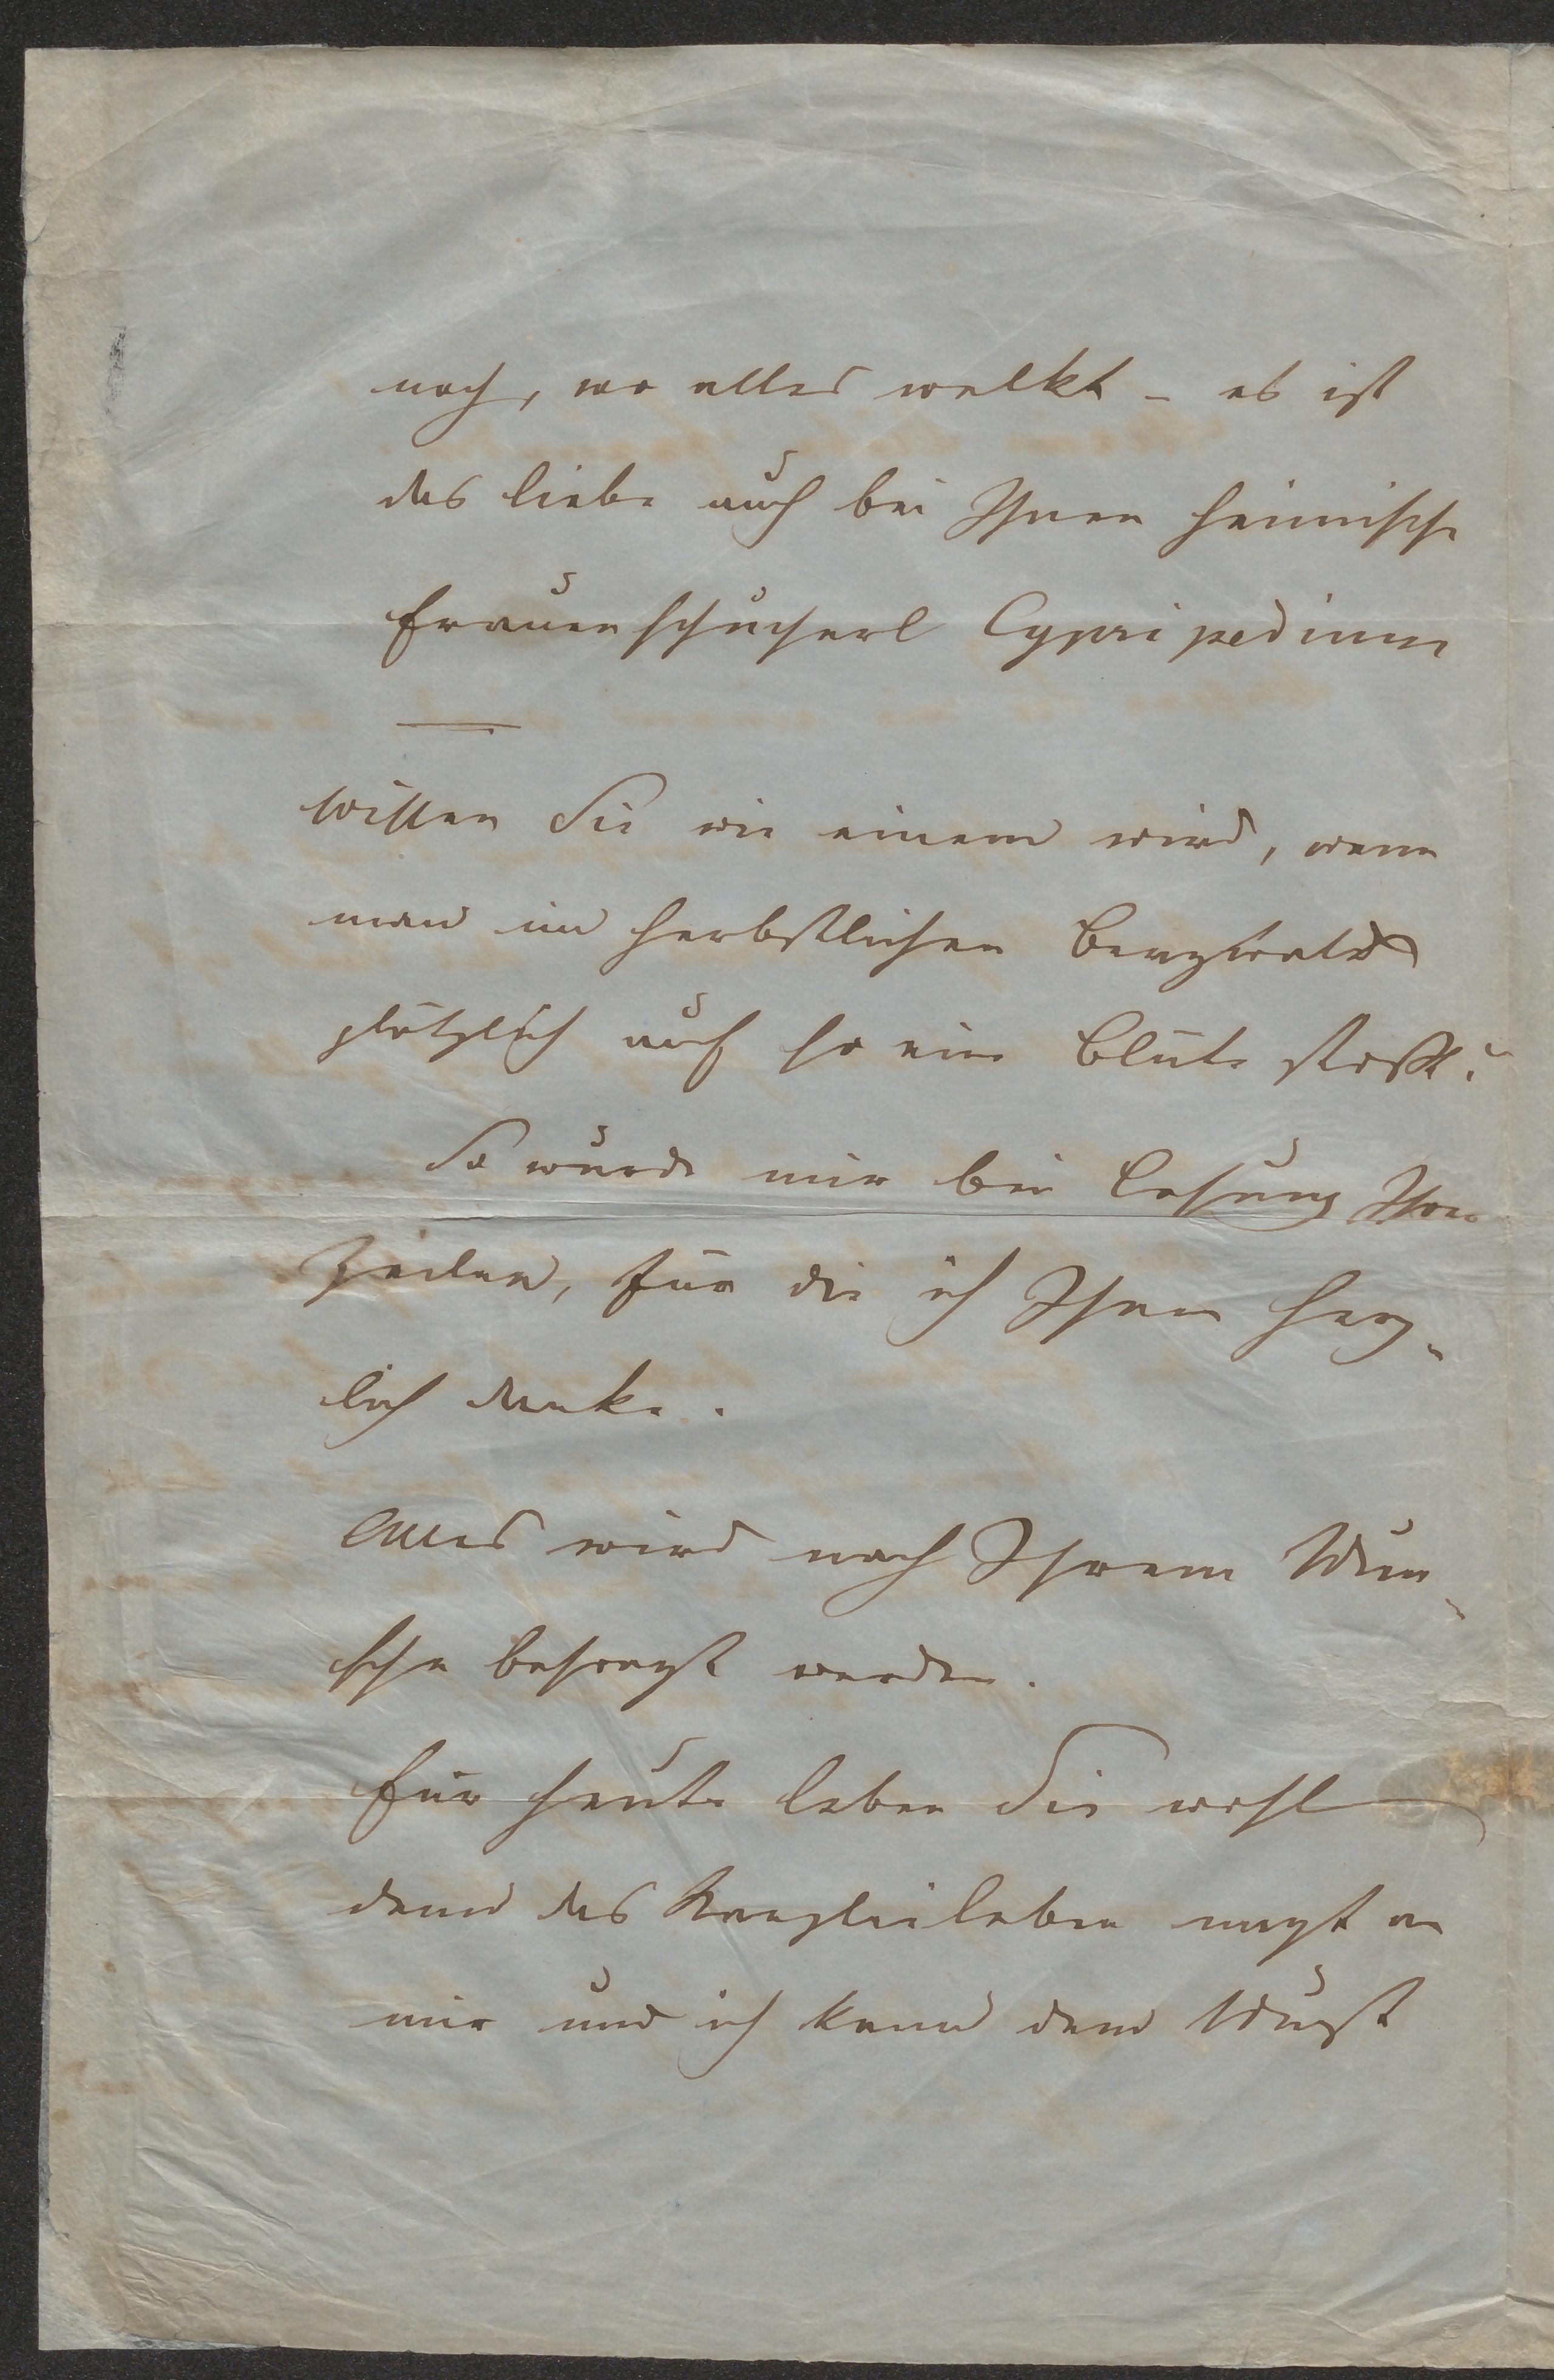 noch, wo alles welkt – es ist
das liebe auch bei Ihnen heimische
Frauenschucherl Cypripedium
—
Wissen Sie wie einem wird, wenn
man im herbstlichen Bergwald
plötzlich auf so eine Blüte stoßt?
So wurde mir bei Lesung Ihrer
Zeilen, für die ich Ihnen herz-
lich danke.
Alles wird nach Ihrem Wun-
sche besorgt werden.
Für heute leben Sie wohl
denn das Kanzleileben nagt an
mir und ich kann dem Wust